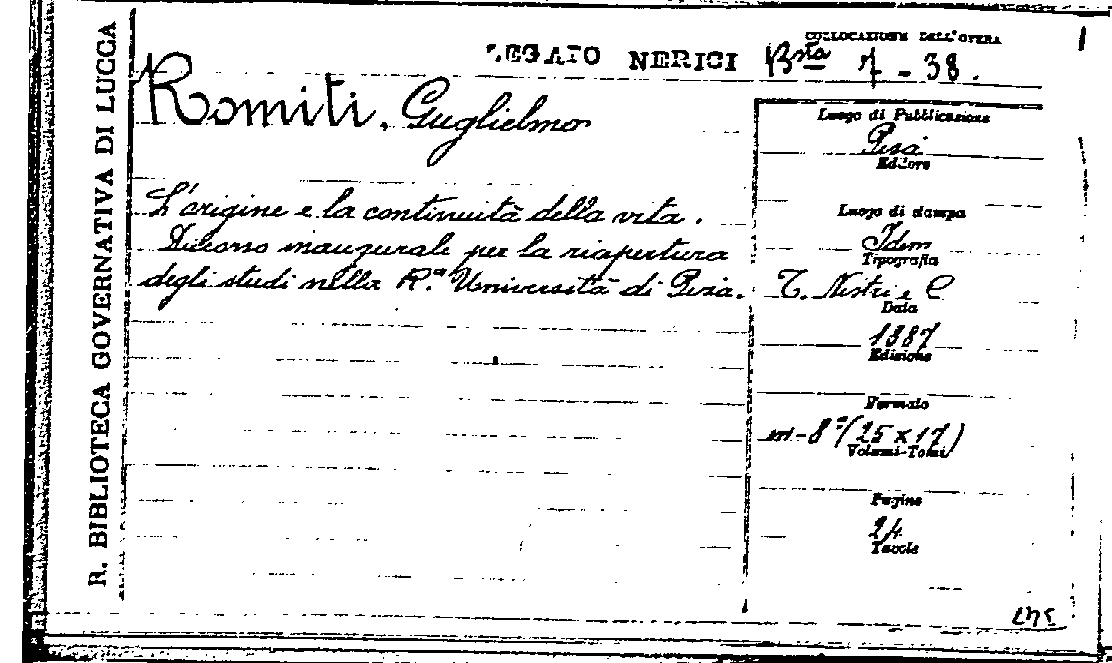 R. BIBLIOTECA GOVERNATIVA DI LUCCA
LEGATO NERICI
COLLOCAZIONE DELL'OPERA
Bta 7 - 38.
Romiti, Guglielmo
L'origine e la continuità della vita.
Discorso inaugurale per la riapertura
degli studi nella R.a Università di Pisa.
Luogo di Pubblicazione
Pisa
Editore
Luogo di stampa
Idem
Tipografia
T. Nistri e C
Data
1887
Edizione
Formato
in-8° (25 x 17)
Volumi-Tomi
Pagine
24
Tavole